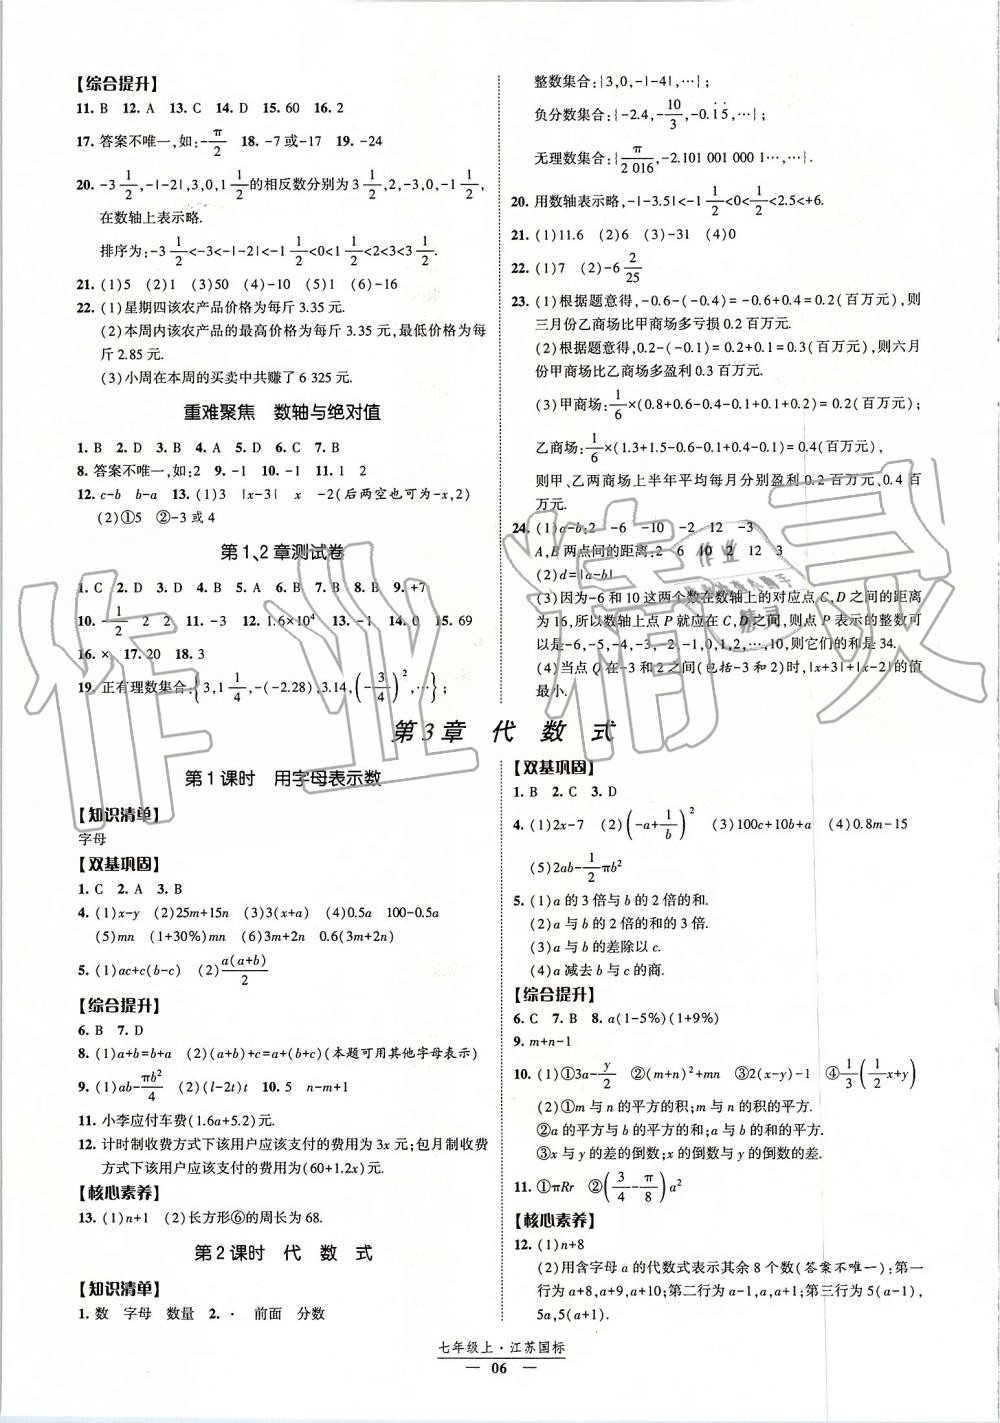 【综合提升】
11. B 12. A 13. C 14. D 15. 60 16. 2
17. 答案不唯一,如:-π/2 18. -7或-17 19. -24
20. -3 1/2,-|-2|,3,0,1 1/2的相反数分别为3 1/2,2,-3,0,-1 1/2,
在数轴上表示略.
排序为:-3 1/2<-3<-|-2|<-1 1/2<0<1 1/2<2<3<3 1/2.
21. (1)5 (2)1 (3)50 (4)-10 (5)1 (6)-16
22. (1)星期四该农产品价格为每斤3.35元.
(2)本周内该农产品的最高价格为每斤3.35元,最低价格为每
斤2.85元.
(3)小周在本周的买卖中共赚了6 325元.
重难聚焦 数轴与绝对值
1. B 2. D 3. B 4. A 5. D 6. C 7. B
8. 答案不唯一,如:2 9. -1 10. -1 11. 1 2
12. c-b b-a 13. (1)3 |x-3| x -2(后两空也可为-x,2)
(2)①5 ②-3或4
第1、2章测试卷
1. C 2. D 3. D 4. B 5. A 6. B 7. B 8. B 9. +7
10. -1/2 2 2 11. -3 12. 1.6×10⁴ 13. -1 14. 0 15. 69
16. × 17. 20 18. 3
19. 正有理数集合:{3,1 1/4,-(-2.28),3.14,(-3/4)²,…};
整数集合:{3,0,-|-4|,…};
负分数集合:{-2.4,-10/3,-0.1̇5̇,…};
无理数集合:{π/2 016,-2.101 001 000 1…,…}.
20. 用数轴表示略,-|-3.5|<-1 1/2<0<1/2<2.5<+6.
21. (1)11.6 (2)6 (3)-31 (4)0
22. (1)7 (2)-6 2/25
23. (1)根据题意得,-0.6-(-0.4)=-0.6+0.4=0.2(百万元),则
三月份乙商场比甲商场多亏损0.2百万元.
(2)根据题意得,0.2-(-0.1)=0.2+0.1=0.3(百万元),则六月
份甲商场比乙商场多盈利0.3百万元.
(3)甲商场:1/6×(0.8+0.6-0.4-0.1+0.1+0.2)=0.2(百万元);
乙商场:1/6×(1.3+1.5-0.6-0.1+0.4-0.1)=0.4(百万元),
则甲、乙两商场上半年平均每月分别盈利0.2百万元、0.4百
万元.
24. (1)a-b:2 -6 -10 -2 12 -3
A,B两点间的距离:2 6 10 2 12 3
(2)d=|a-b|
(3)因为-6和10这两个数在数轴上的对应点C,D之间的距离
为16,所以数轴上点P就应在C,D之间,则点P表示的整数可
以是-6,-5,-4,-3,-2,-1,0,1,2,…,10,则它们的和是34.
(4)当点Q在-3和2之间(包括-3和2)时,|x+3|+|x-2|的值
最小.
第3章 代数式
第1课时 用字母表示数
【知识清单】
字母
【双基巩固】
1. C 2. A 3. B
4. (1)x-y (2)25m+15n (3)3(x+a) (4)0.5a 100-0.5a
(5)mn (1+30%)mn (6)3m+2n 0.6(3m+2n)
5. (1)ac+c(b-c) (2)a(a+b)/2
【综合提升】
6. B 7. D
8. (1)a+b=b+a (2)(a+b)+c=a+(b+c)(本题可用其他字母表示)
9. (1)ab-πb²/4 (2)(l-2t)t 10. 5 n-m+1
11. 小李应付车费(1.6a+5.2)元.
12. 计时制收费方式下该用户应该支付的费用为3x元;包月制收费
方式下该用户应该支付的费用为(60+1.2x)元.
【核心素养】
13. (1)n+1 (2)长方形⑥的周长为68.
第2课时 代数式
【知识清单】
1. 数 字母 数量 2. · 前面 分数
【双基巩固】
1. B 2. C 3. D
4. (1)2x-7 (2)(-a+1/b)² (3)100c+10b+a (4)0.8m-15
(5)2ab-1/2πb²
5. (1)a的3倍与b的2倍的和.
(2)a与b的2倍的和的3倍.
(3)a与b的差除以c.
(4)a减去b与c的商.
【综合提升】
6. C 7. B 8. a(1-5%)(1+9%)
9. m+n-1
10. (1)①3a-y/2 ②(m+n)²+mn ③2(x-y)-1 ④1/3(1/2x+y)
(2)①m与n的平方的积;m与n的积的平方.
②a的平方与b的平方的和;a与b的和的平方.
③x与y的差的倒数;x的倒数与y的倒数的差.
11. ①πRr ②(3/4-π/8)a²
【核心素养】
12. (1)n+8
(2)用含字母a的代数式表示其余8个数(答案不唯一):第一
行为a+8,a+9,a+10;第二行为a-1,a,a+1;第三行为5(a-1),
5a,5(a+1).
七年级上·江苏国标
06
作业精灵